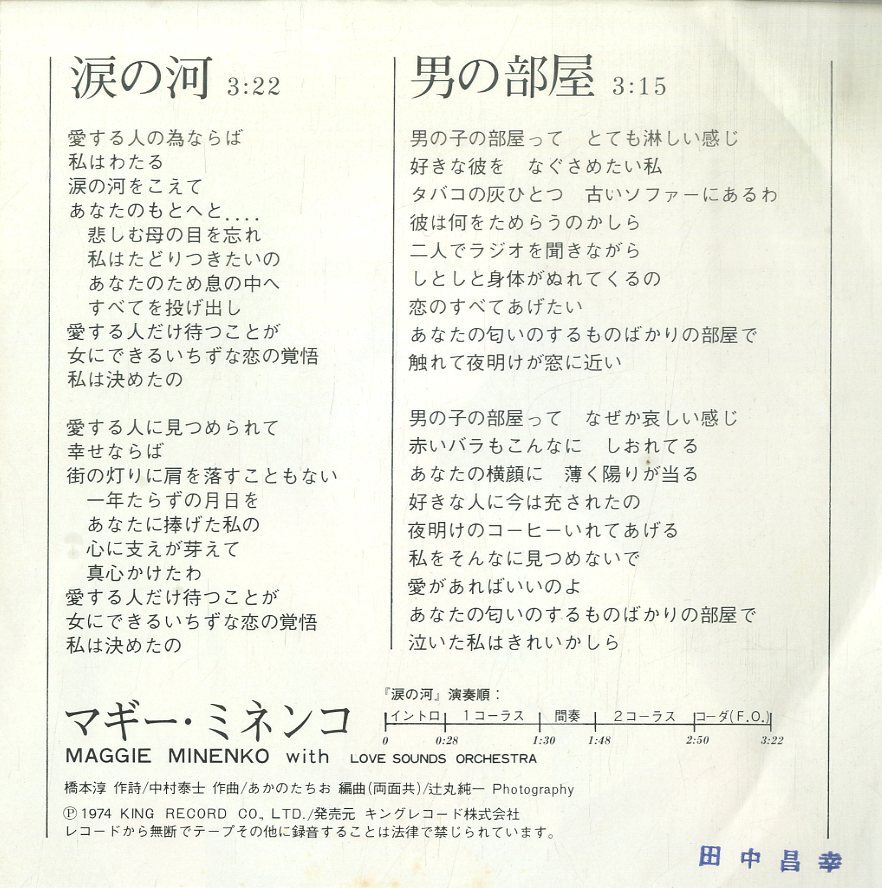 涙の河 3:22
愛する人の為ならば
私はわたる
涙の河をこえて
あなたのもとへと....
悲しむ母の目を忘れ
私はたどりつきたいの
あなたのため息の中へ
すべてを投げ出し
愛する人だけ待つことが
女にできるいちずな恋の覚悟
私は決めたの
愛する人に見つめられて
幸せならば
街の灯りに肩を落すこともない
一年たらずの月日を
あなたに捧げた私の
心に支えが芽えて
真心かけたわ
愛する人だけ待つことが
女にできるいちずな恋の覚悟
私は決めたの
男の部屋 3:15
男の子の部屋って とても淋しい感じ
好きな彼を なぐさめたい私
タバコの灰ひとつ 古いソファーにあるわ
彼は何をためらうのかしら
二人でラジオを聞きながら
しとしと身体がぬれてくるの
恋のすべてあげたい
あなたの匂いのするものばかりの部屋で
触れて夜明けが窓に近い
男の子の部屋って なぜか哀しい感じ
赤いバラもこんなに しおれてる
あなたの横顔に 薄く陽りが当る
好きな人に今は充されたの
夜明けのコーヒーいれてあげる
私をそんなに見つめないで
愛があればいいのよ
あなたの匂いのするものばかりの部屋で
泣いた私はきれいかしら
マギー・ミネンコ
MAGGIE MINENKO with LOVE SOUNDS ORCHESTRA
『涙の河』演奏順：
イントロ 1コーラス 間奏 2コーラス コーダ(F.O.)
0 0:28 1:30 1:48 2:50 3:22
橋本淳 作詩/中村泰士 作曲/あかのたちお 編曲(両面共)/辻丸純一 Photography
Ⓟ1974 KING RECORD CO., LTD./発売元 キングレコード株式会社
レコードから無断でテープその他に録音することは法律で禁じられています。
田中昌幸